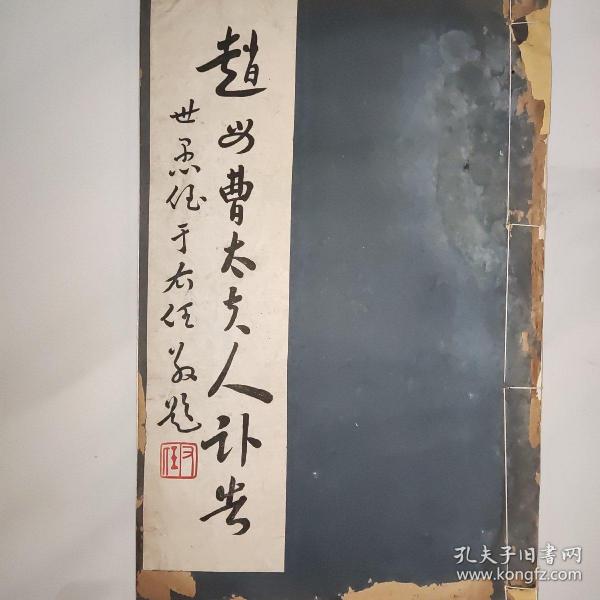 趙母曹太夫人訃告
世愚侄于右任敬題
右任
孔夫子旧书网
www.kongfz.com